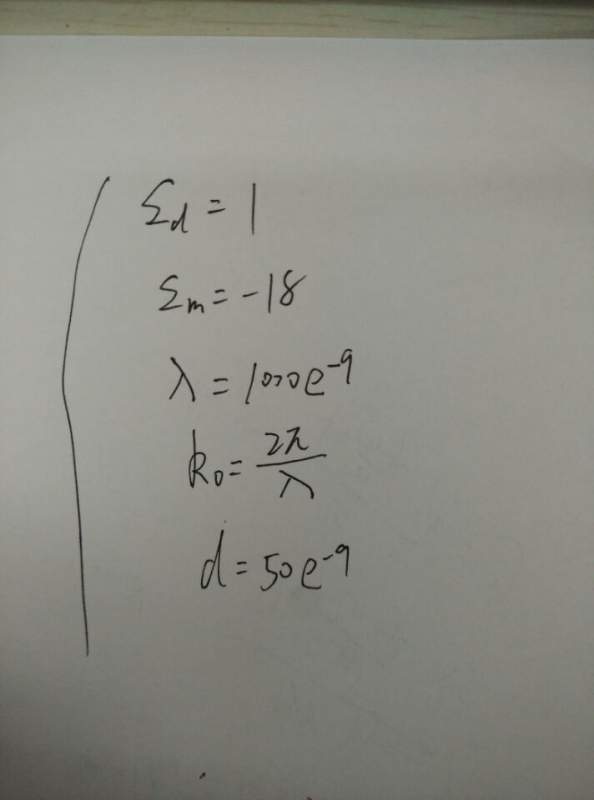 Σd = 1
Σm = -18
λ = 1000e⁻⁹
k₀ = 2π/λ
d = 50e⁻⁹